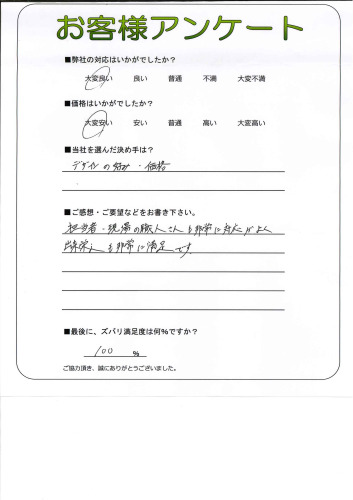 お客様アンケート
■弊社の対応はいかがでしたか?
大変良い 良い 普通 不満 大変不満
■価格はいかがでしたか?
大変安い 安い 普通 高い 大変高い
■当社を選んだ決め手は?
デザインの好み・価格
■ご感想・ご要望などをお書き下さい。
担当者・現場の職人さんも非常に対応がよく
出来栄えも非常に満足です。
■最後に、ズバリ満足度は何%ですか?
100 %
ご協力頂き、誠にありがとうございました。